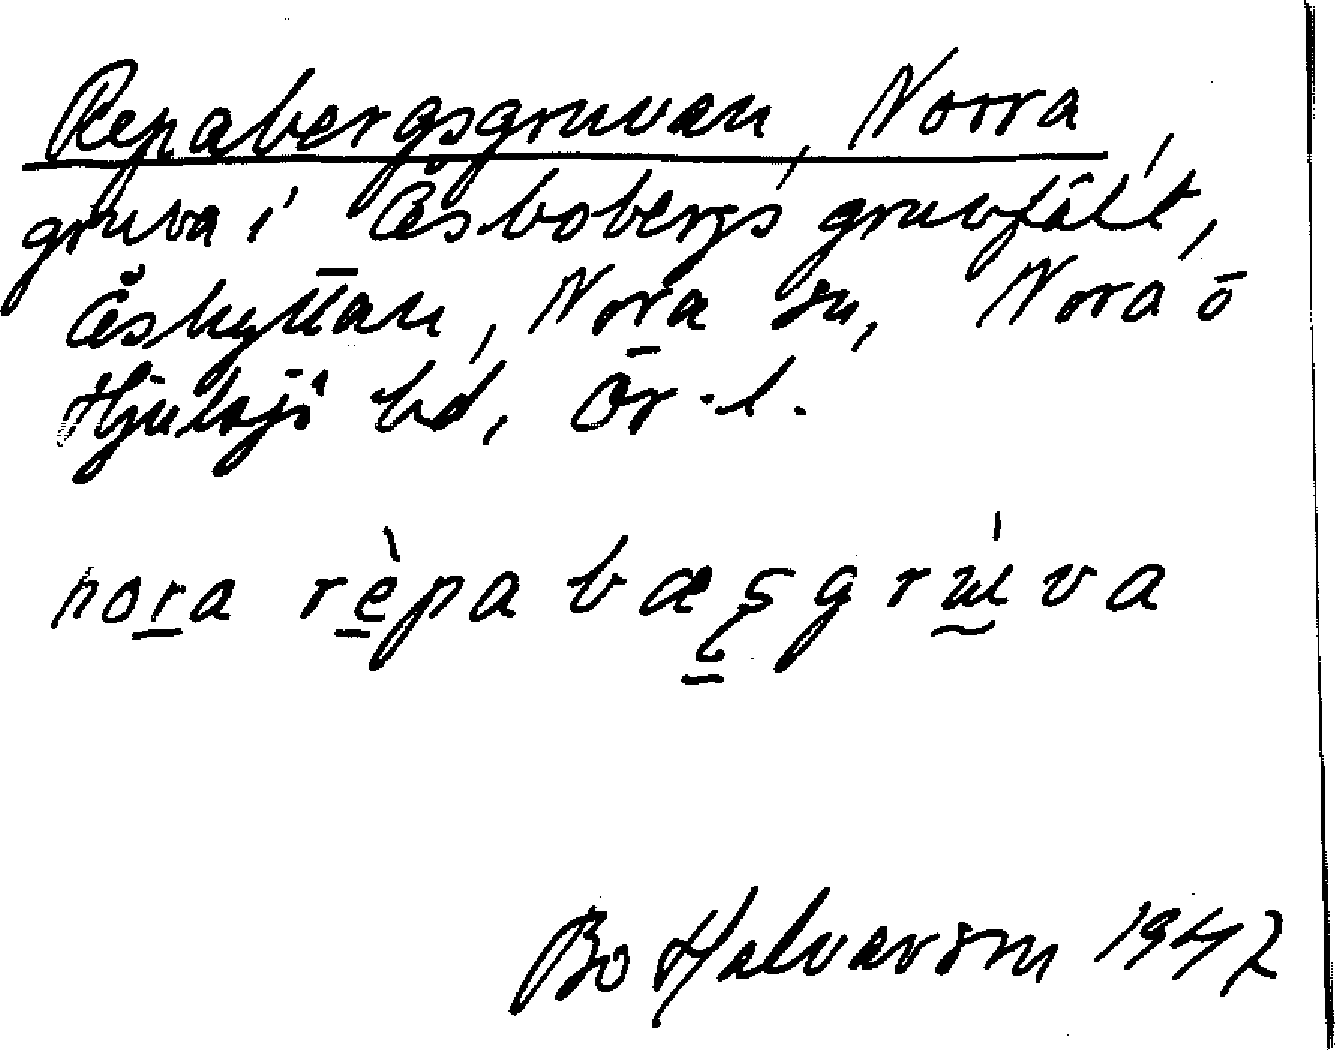 Repabergsgruvan, Norra,
gruva i Åsbobergs gruvfält,
Åshyttan, Nora sn, Nora o
Hjulsjö bd, Ör. l.
nora rèpabæʂgrúva
Bo Halvarson 1947